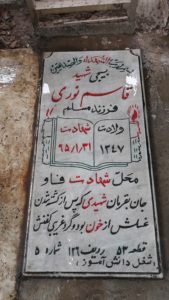 بسیجی شهید
قاسم نوری
فرزند مسلم
ولادت شهادت
۱۳۴۷ ۹۵/۱/۳۱
محل شهادت فاو
جان بقربان شهیدی که پس از کشته شدن
غسلش از خون بود و گرد غریبی کفنش
قطعه ۵۳ ردیف ۱۲۶ شماره ۵
شغل دانش آموز